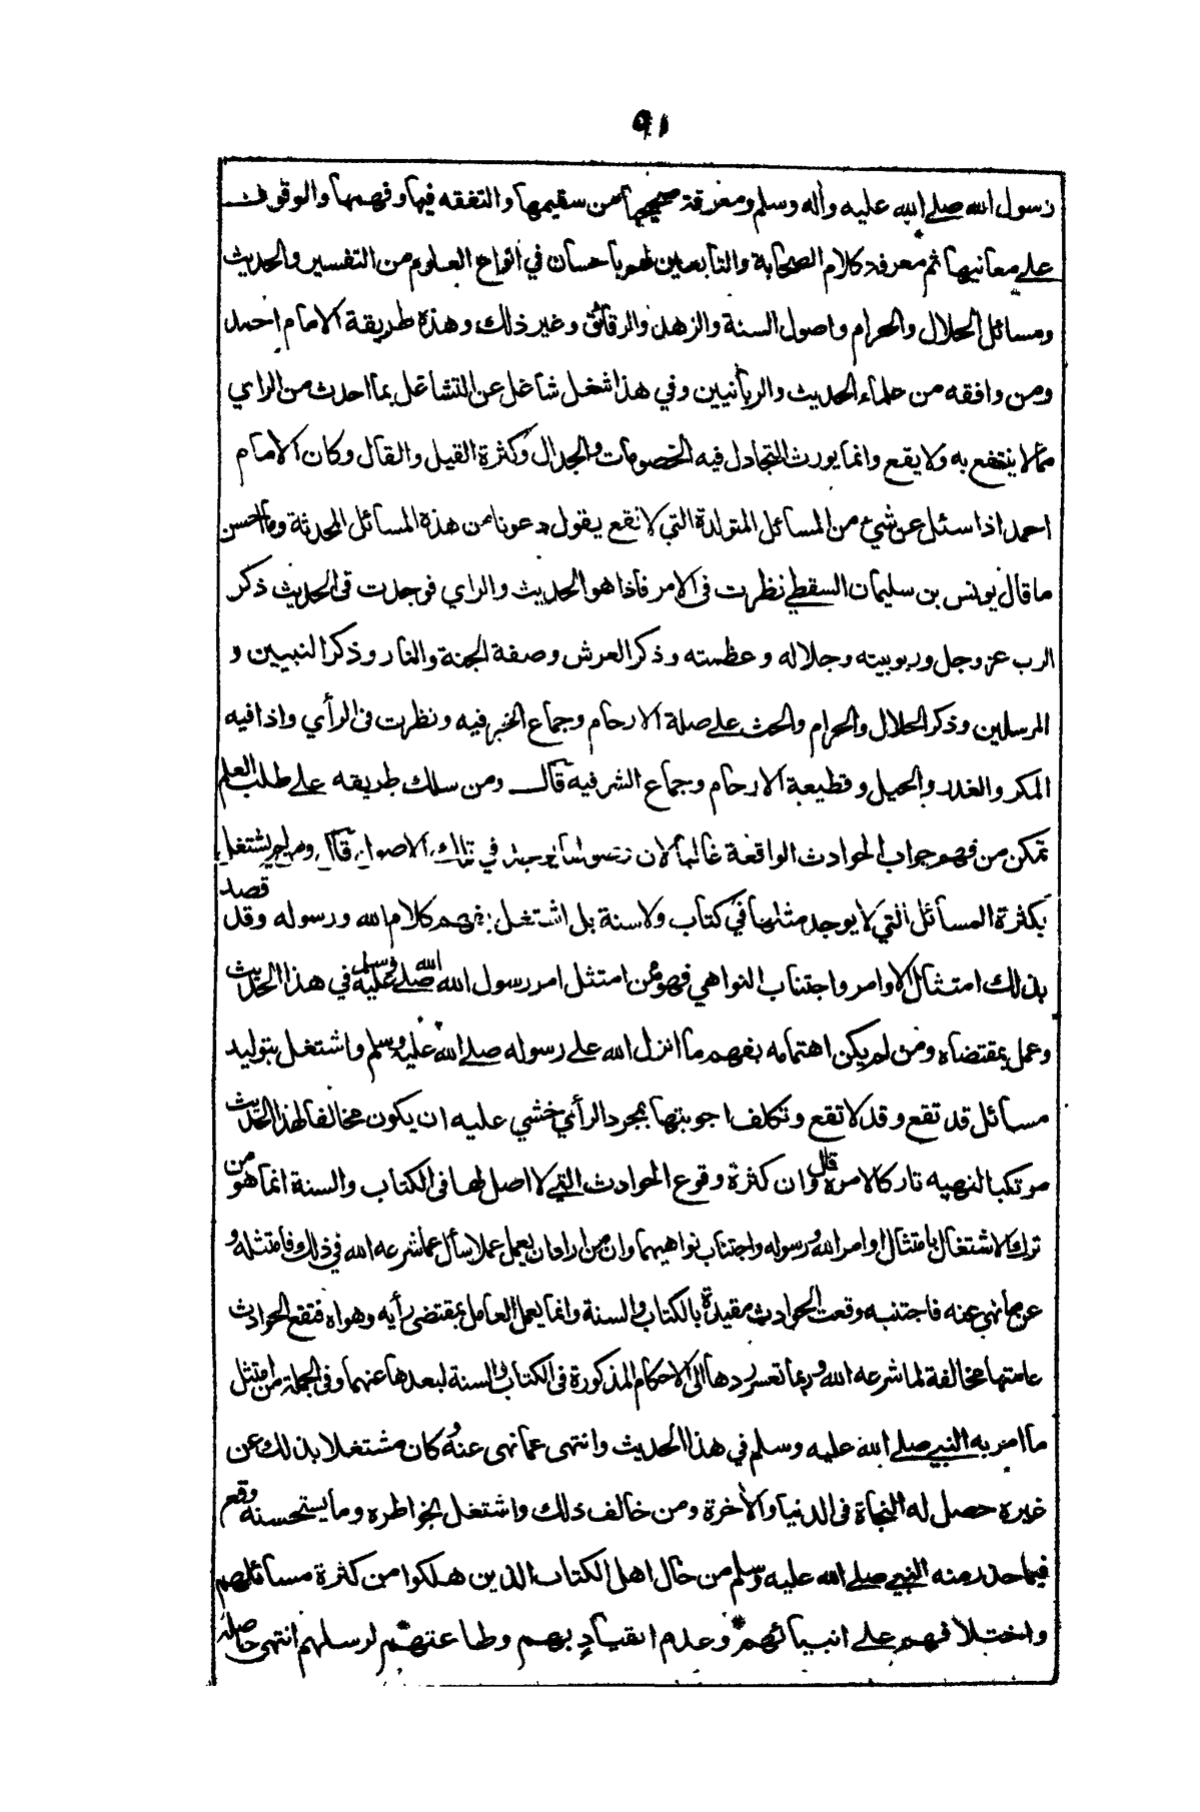 ٩١
رسول الله صلے الله عليه واله وسلم ومعرفة صحيحها من سقيمها والتفقه فيها وفهمها والوقوف
علے معانيها ثم معرفة كلام الصحابة والتابعين لهم باحسان في انواع العلوم من التفسير والحديث
ومسائل الحلال والحرام واصول السنة والزهد والرقائق وغير ذلك وهذه طريقة الامام احمد
ومن وافقه من علماء الحديث والربانيين وفي هذا شغل شاغل عن التشاغل بما احدث من الراي
مما لا ينتفع به ولا يقع وانما يورث التجادل فيه الخصومات والجدال وكثرة القيل والقال وكان الامام
احمد اذا سئل عن شئ من المسائل المتولدة التي لا تقع يقول دعونا من هذه المسائل المحدثة وما احسن
ما قال يونس بن سليمان السقطي نظرت فى الامر فاذا هو الحديث والراي فوجدت فى الحديث ذكر
الرب عز وجل وربوبيته وجلاله وعظمته وذكر العرش وصفة الجنة والنار وذكر النبيين و
المرسلين وذكر الحلال والحرام والحث علے صلة الارحام وجماع الخير فيه ونظرت فى الرأي واذا فيه
المكر والغدر والحيل وقطيعة الارحام وجماع الشر فيه قال ومن سلك طريقه علے طلب العلم
تمكن من فهم جواب الحوادث الواقعة غالبا لان في تلك الاصول قال ومن لم يشتغل
بكثرة المسائل التي لا يوجد مثلها في كتاب ولا سنة بل اشتغل بفهم كلام الله ورسوله وقد قصد
بذلك امتثال الاوامر واجتناب النواهي فهو ممن امتثل امر رسول الله صلے الله عليه وسلم في هذا الحديث
وعمل بمقتضاه ومن لم يكن اهتمامه بفهم ما انزل الله علے رسوله صلے الله عليه وسلم واشتغل بتوليد
مسائل قد تقع وقد لا تقع وتكلف اجوبتها بمجرد الرأي خشي عليه ان يكون مخالفا لهذا الحديث
مرتكبا لنهيه تاركا لامره قال وان كثرة وقوع الحوادث التي لا اصل لها فى الكتاب والسنة انما هو من
ترك الاشتغال بامتثال اوامر الله ورسوله واجتناب نواهيهما وان من اراد ان يعمل عملا سأل عما شرعه الله في ذلك فامتثله و
عن ما نهى عنه فاجتنبه وقعت الحوادث مقيدة بالكتاب والسنة وانما يعمل العامل بمقتضى رأيه وهواه فتقع الحوادث
عامتها مخالفة لما شرعه الله وربما تعسر ردها الى الاحكام المذكورة فى الكتاب والسنة لبعدها عنهما وفى الجملة من امتثل
ما امر به النبي صلے الله عليه وسلم في هذا الحديث وانتهى عما نهى عنه وكان مشتغلا بذلك عن
غيره حصل له النجاة فى الدنيا والاخرة ومن خالف ذلك واشتغل بخواطره وما يستحسنه وقع
فيما حذر منه النبي صلے الله عليه وسلم من حال اهل الكتاب الذين هلكوا من كثرة مسائلهم
واختلافهم علے انبيائهم وعدم انقيادهم وطاعتهم لرسلهم انتهى حاصله